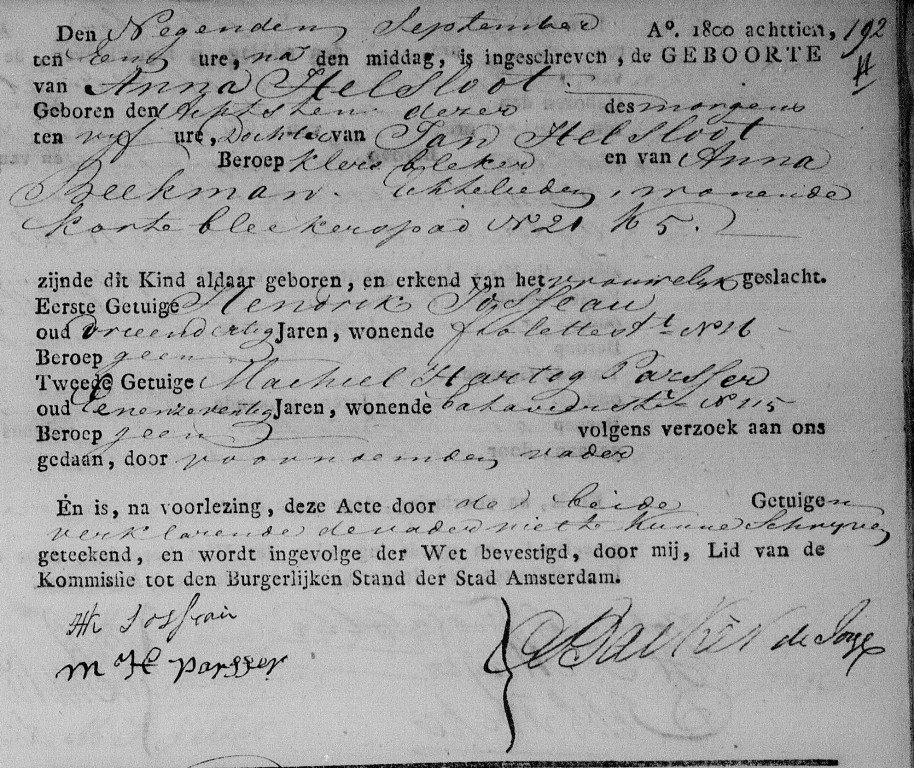 Den Negenden September A°. 1800 achttien, 192
ten Een ure, na den middag, is ingeschreven, de GEBOORTE
van Anna Helsloot
Geboren den dezer des morgens
ten vijf ure, Dochter van Jan Helsloot
Beroep kleer bleker en van Anna
Beekman. Echtelieden, wonende
korte bleekerspad N 21 K 5.
zijnde dit Kind aldaar geboren, en erkend van het vrouwelyk geslacht.
Eerste Getuige Hendrik Josseau
oud drieendertig Jaren, wonende N 16
Beroep geen
Tweede Getuige Machiel Hartog Parsser
oud Eenenzeventig Jaren, wonende batavierstr N 115
Beroep geen volgens verzoek aan ons
gedaan, door voornoemden vader
En is, na voorlezing, deze Acte door de beide Getuigen
verklarende de vader niet te kunne Schryven
geteekend, en wordt ingevolge der Wet bevestigd, door mij, Lid van de
Kommissie tot den Burgerlijken Stand der Stad Amsterdam.
H Josseau
M H Parsser
Backer de Jonge